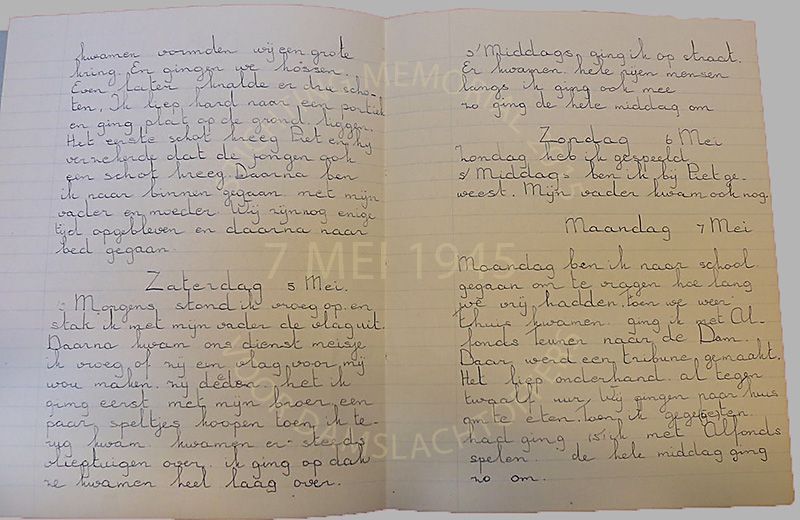 kwamen vormden wij een grote
kring. En gingen we hossen.
Even later knalde er drie scho-
ten, Ik liep hard naar een portiek
en ging plat op de grond liggen.
Het eerste schot kreeg Piet en hij
verzekerde dat de jongen ook
een schot kreeg. Daarna ben
ik naar binnen gegaan met mijn
vader en moeder. Wij zijn nog enige
tijd opgebleven en daarna naar
bed gegaan.
Zaterdag 5 Mei.
's Morgens stond ik vroeg op. en
stak ik met mijn vader de vlag uit.
Daarna kwam ons dienst meisje
ik vroeg of zij een vlag voor mij
wou maken. zij deed het ik
ging eerst met mijn broer een
paar speltjes koopen toen ik te-
rug kwam. kwamen er steeds
vliegtuigen over. ik ging op dak
ze kwamen heel laag over.
s'Middags ging ik op straat.
Er kwamen hele rijen mensen
langs ik ging ook mee
zo ging de hele middag om
Zondag 6 Mei
Zondag heb ik gespeeld
s'Middags ben ik bij Piet ge-
weest. Mijn vader kwam ook nog.
Maandag 7 Mei
Maandag ben ik naar school
gegaan om te vragen hoe lang
we vrij hadden. toen we weer
thuis kwamen ging ik met Al-
fonds leunen naar de Dam.
Daar werd een tribune gemaakt.
Het liep onderhand al tegen
twaalf uur. Wij gingen naar huis
om te eten. toen ik gegeten
had ging ik met Alfonds
spelen. de hele middag ging
zo om.
MEMORIAL 2015
7 MEI 1945
VOOR DAMSLACHTOFFERS